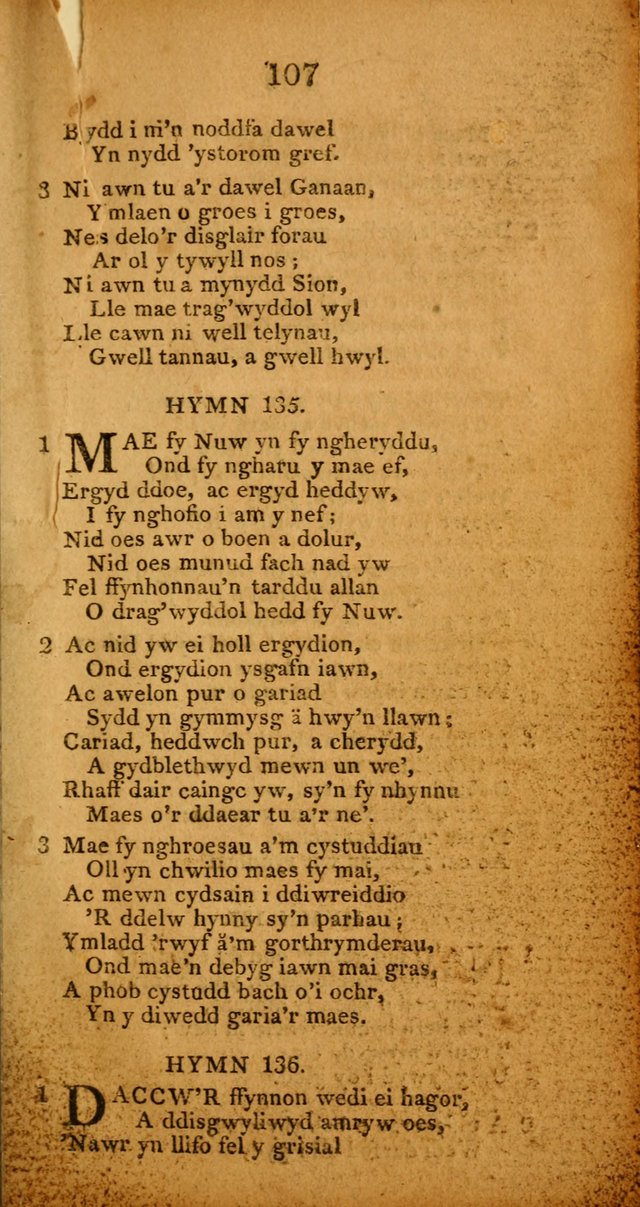 107
Bydd i m'n noddfa dawel
Yn nydd 'ystorom gref.
3 Ni awn tu a'r dawel Ganaan,
Y mlaen o groes i groes,
Nes delo'r disglair forau
Ar ol y tywyll nos ;
Ni awn tu a mynydd Sion,
Lle mae trag'wyddol wyl
Lle cawn ni well telynau,
Gwell tannau, a gwell hwyl.
HYMN 135.
1 MAE fy Nuw yn fy ngheryddu,
Ond fy ngharu y mae ef,
Ergyd ddoe, ac ergyd heddyw,
I fy nghofio i am y nef ;
Nid oes awr o boen a dolur,
Nid oes munud fach nad yw
Fel ffynhonnau'n tarddu allan
O drag'wyddol hedd fy Nuw.
2 Ac nid yw ei holl ergydion,
Ond ergydion ysgafn iawn,
Ac awelon pur o gariad
Sydd yn gymmysg â hwy'n llawn ;
Cariad, heddwch pur, a cherydd,
A gydblethwyd mewn un we',
Rhaff dair caingc yw, sy'n fy nhynnu
Maes o'r ddaear tu a'r ne'.
3 Mae fy nghroesau a'm cystuddiau
Oll yn chwilio maes fy mai,
Ac mewn cydsain i ddiwreiddio
'R ddelw hynny sy'n parhau ;
Ymladd 'rwyf â'm gorthrymderau,
Ond mae'n debyg iawn mai gras,
A phob cystudd bach o'i ochr,
Yn y diwedd garia'r maes.
HYMN 136.
1 DACCW'R ffynnon wedi ei hagor,
A ddisgwyliwyd amryw oes,
'Nawr yn llifo fel y grisial